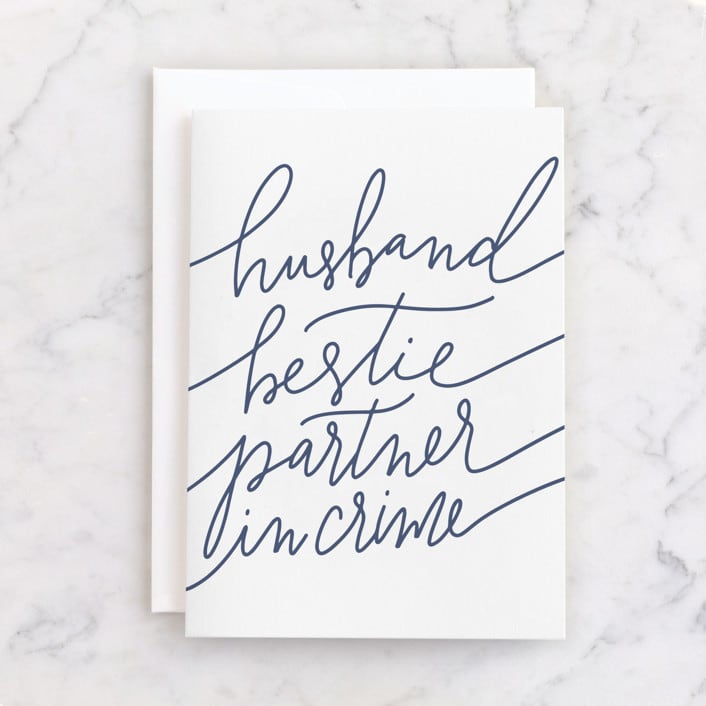 husband
bestie
partner
in crime